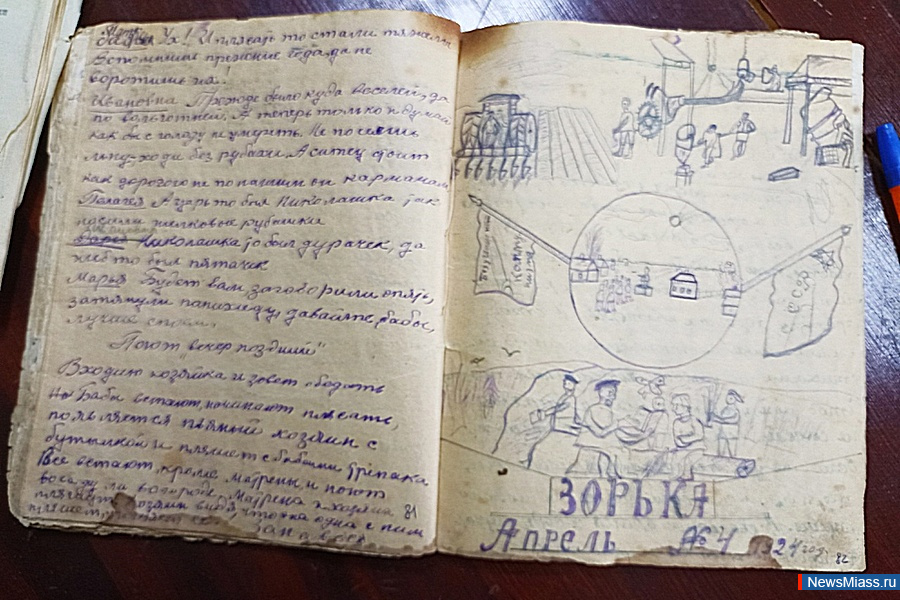 Ух! И плясать то стали тяжело
вспомнишь прежние года да не
воротишь их.
Ивановна Прежде было куда веселей, да
по вольготней. А теперь только и думай
как бы с голоду не умереть. Не
ходи без рубахи. А ситец стоит
как дорого не по нашим он карманам
Пелагея А царь то был Николашка так
носили шелковые рубашки
Николашка то был дурачек, да
хлеб то был пятачек
Марья Будет вам заговорили опять,
затянули панихиду, давайте бабы,
лучше споем.
Поют "вечер поздний"
Входит хозяйка и зовет обедать
Бабы встают, начинают плясать,
появляется пьяный хозяин с
бутылкой и пляшет с бабами трепака
Все встают, кроме Маурены и поют
во саду ли в огороде Маурена
хозяин видя что она одна с ним
81
СССР
ЗОРЬКА
Апрель № 4 1924 год.
82
NewsMiass.ru